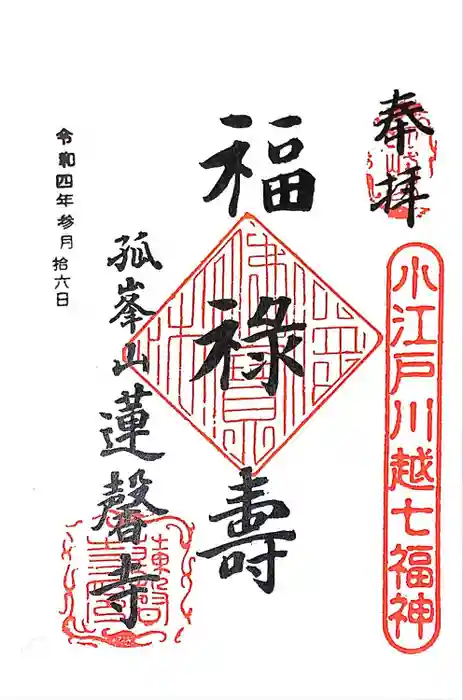 奉拝
小江戸川越七福神
福禄壽
孤峯山蓮馨寺
令和四年参月拾六日